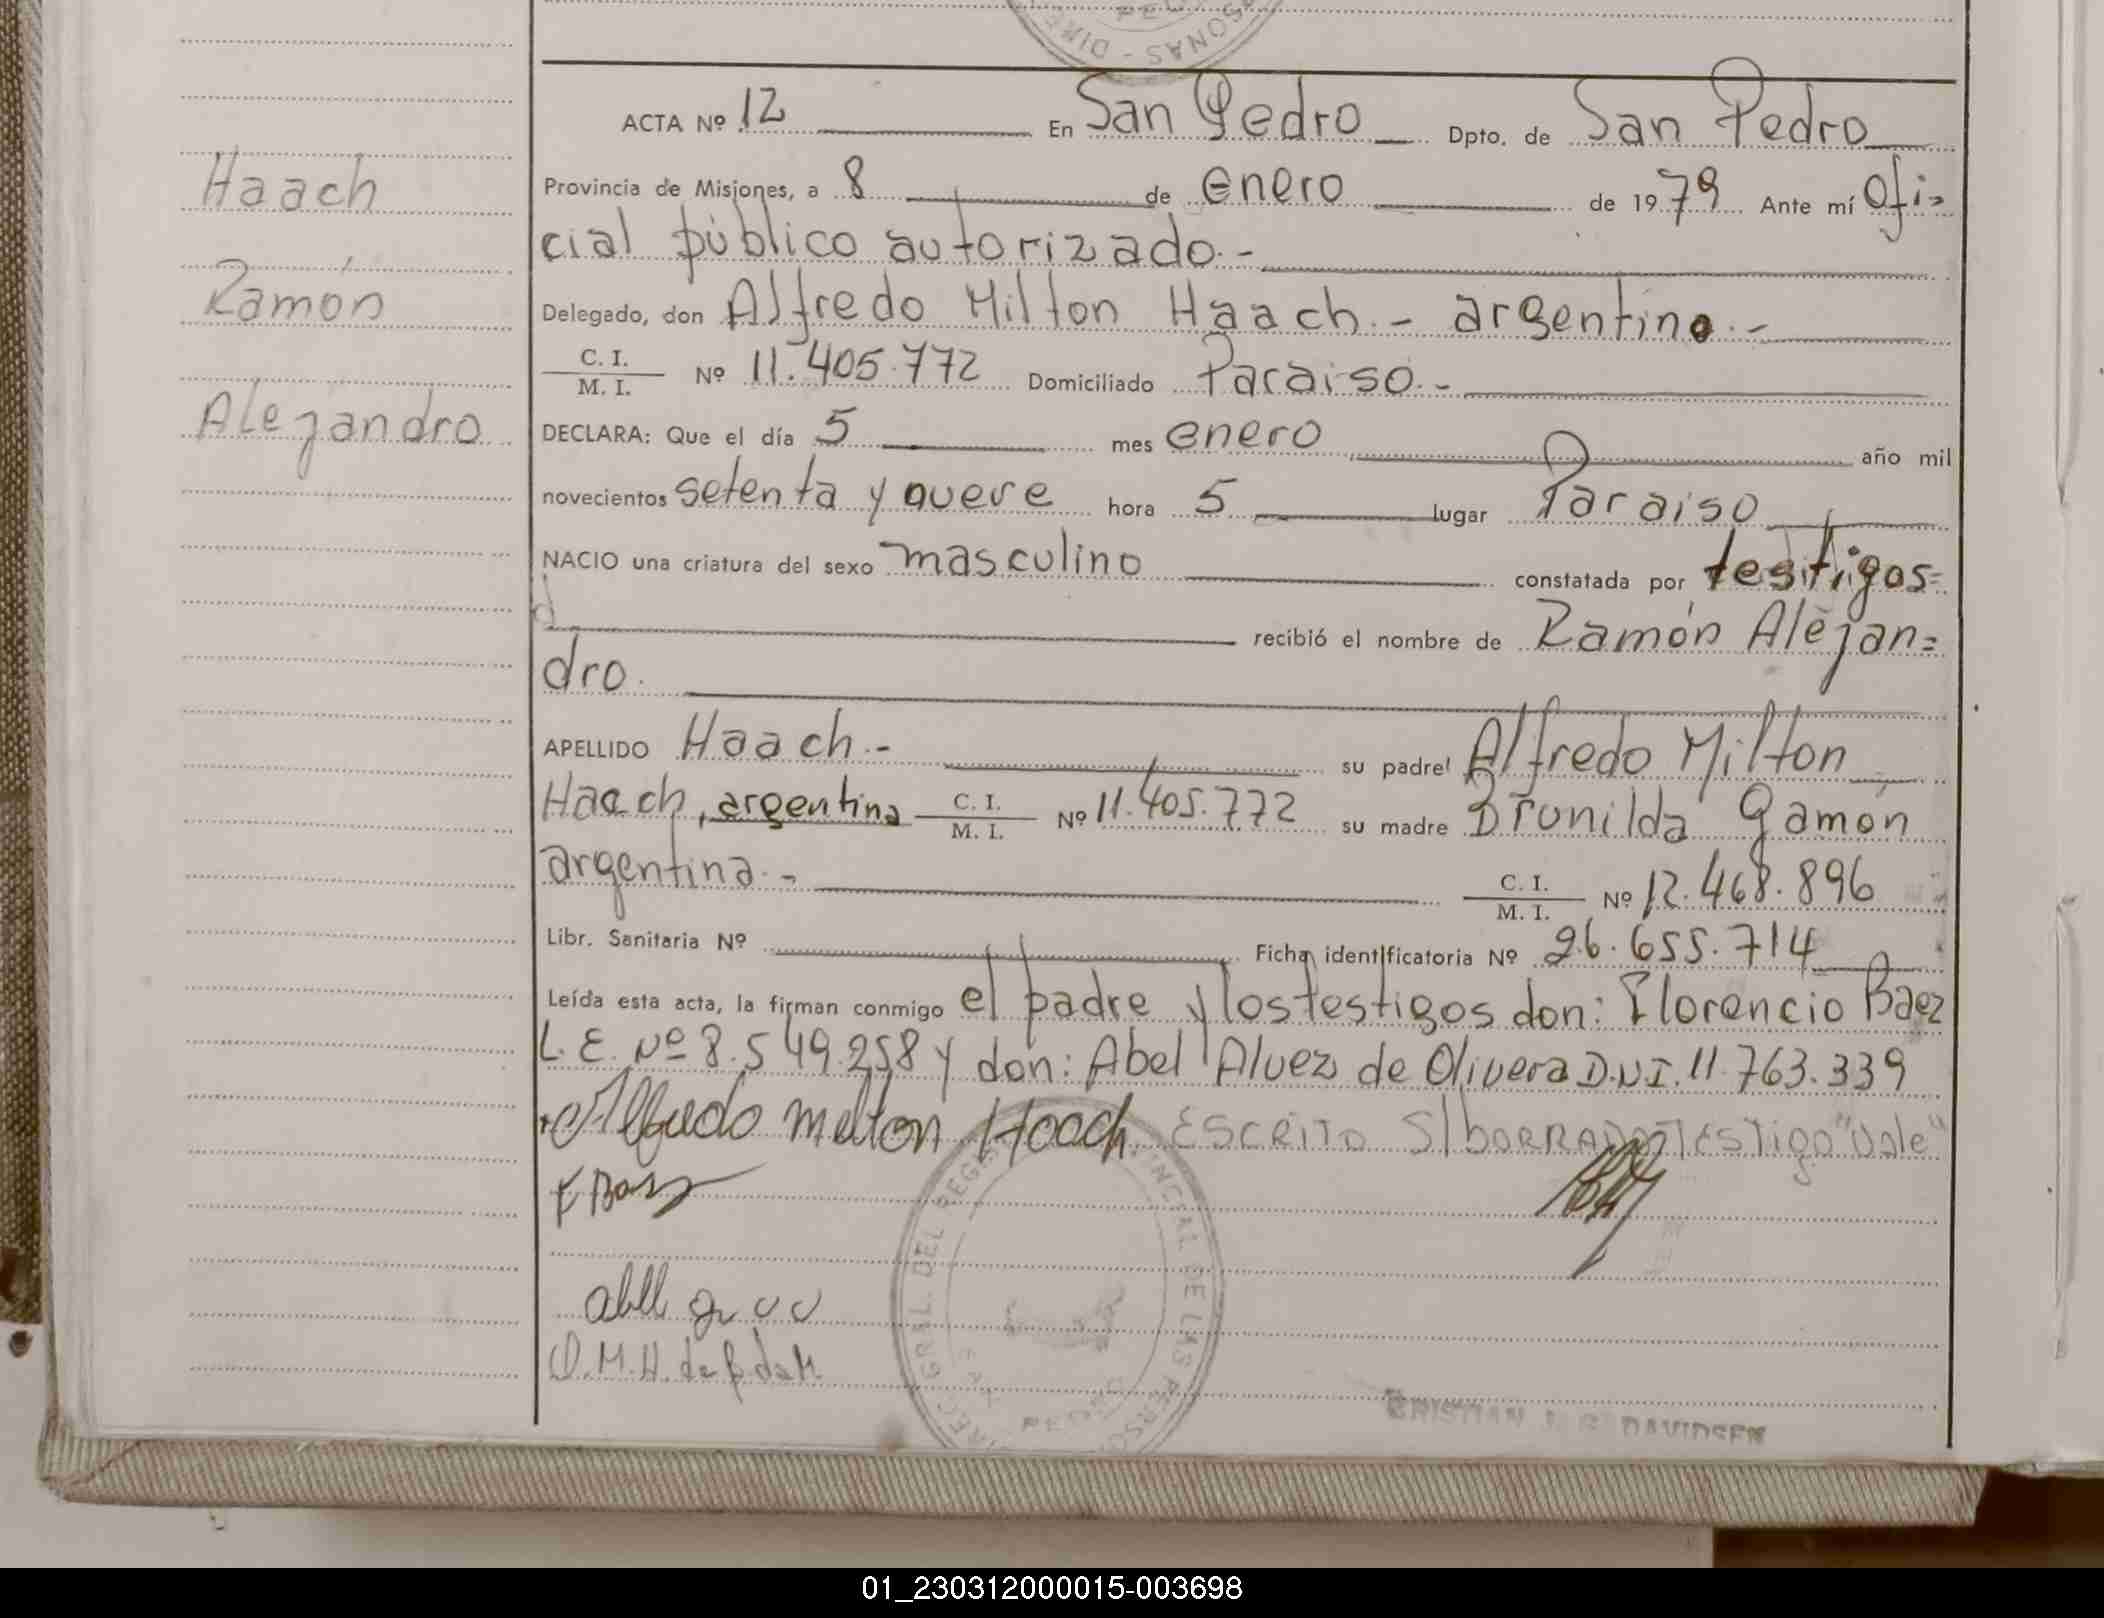 PE
DIRE
ONAS
Haach
Ramón
Alejandro
ACTA Nº 12 En San Pedro Dpto. de San Pedro
Provincia de Misiones, a 8 de enero de 1979 Ante mí Ofi=
cial público autorizado.-
Delegado, don Alfredo Milton Haach.- argentino.-
C. I.
M. I. Nº 11.405.772 Domiciliado Paraiso.-
DECLARA: Que el día 5 mes enero año mil
novecientos setenta y nueve hora 5 lugar Paraiso
NACIO una criatura del sexo masculino constatada por testigos=
d recibió el nombre de Ramón Alejan=
dro.
APELLIDO Haach.- su padre Alfredo Milton
Haach, argentina C. I. M. I. Nº 11.405.772 su madre Brunilda Gamón
argentina.- C. I. M. I. Nº 12.468.896
Libr. Sanitaria Nº Ficha identificatoria Nº 26.655.714
Leída esta acta, la firman conmigo el padre y los testigos don: Florencio Baez
L.E. Nº 8.549.258 y don: Abel Alvez de Olivera D.N.I. 11.763.339
Alfredo Milton Haach. ESCRITO S/bORRADO TESTigo "Vale"
F Baez
DIREC. GRAL. DEL REGIS PROVINCIAL DE LAS PERSO
SAN PEDRO
CRISTIAN J. DAVIDSEN
01_230312000015-003698